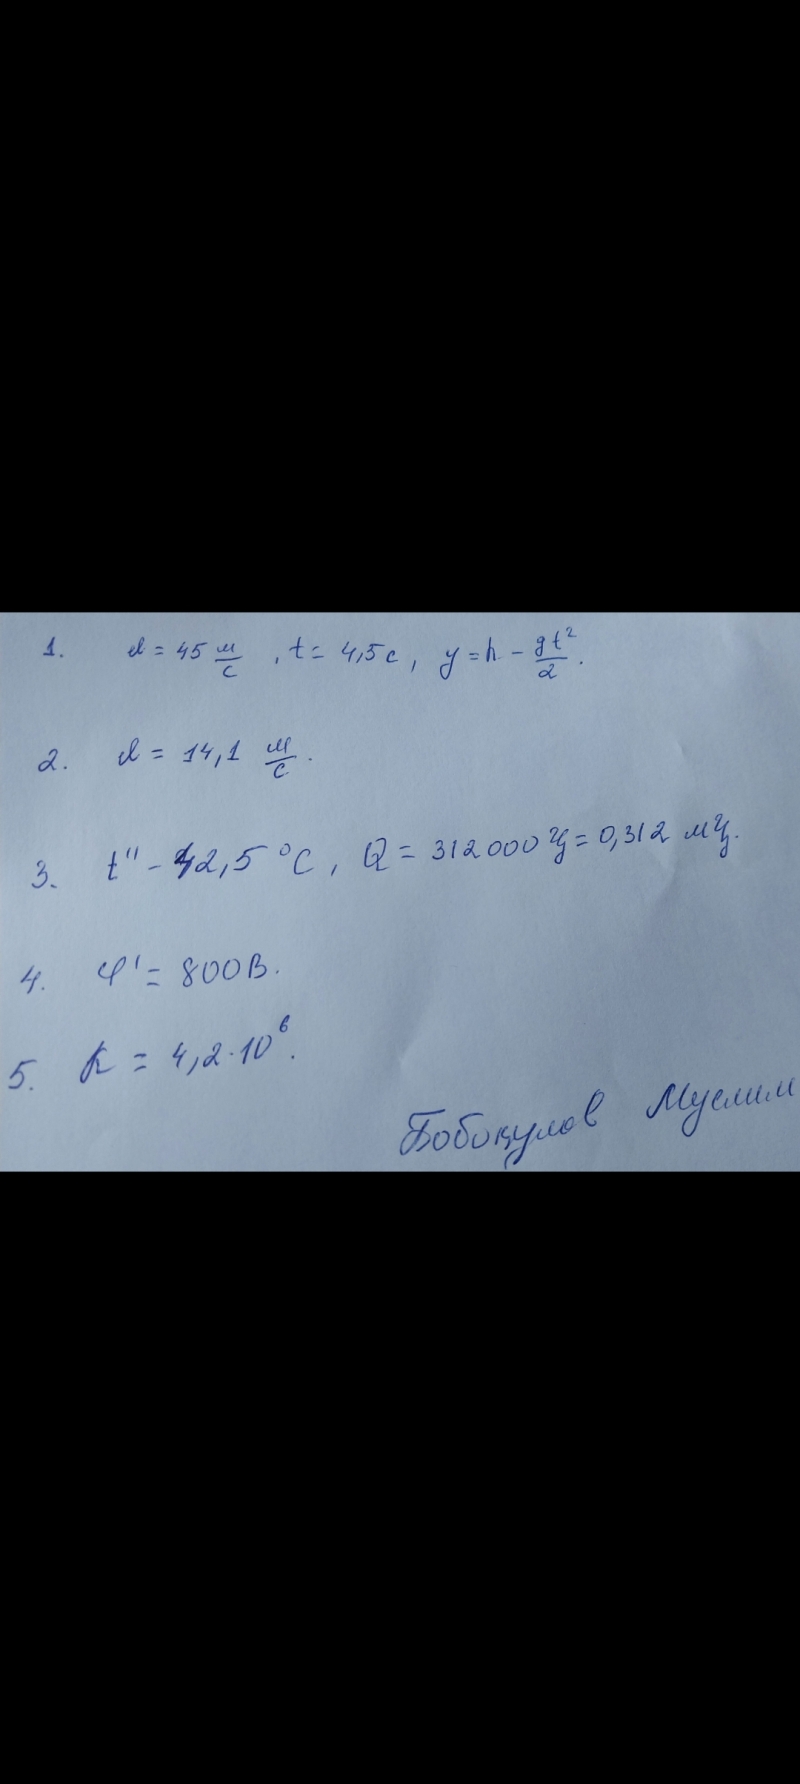 1. υ = 45 м/с, t = 4,5 с, y = h - gt²/2.
2. υ = 14,1 м/с.
3. t" - 42,5 °C, Q = 312000 Ч = 0,312 мЧ.
4. φ' = 800 В.
5. k = 4,2·10⁶.
Бобоқулов Муслим